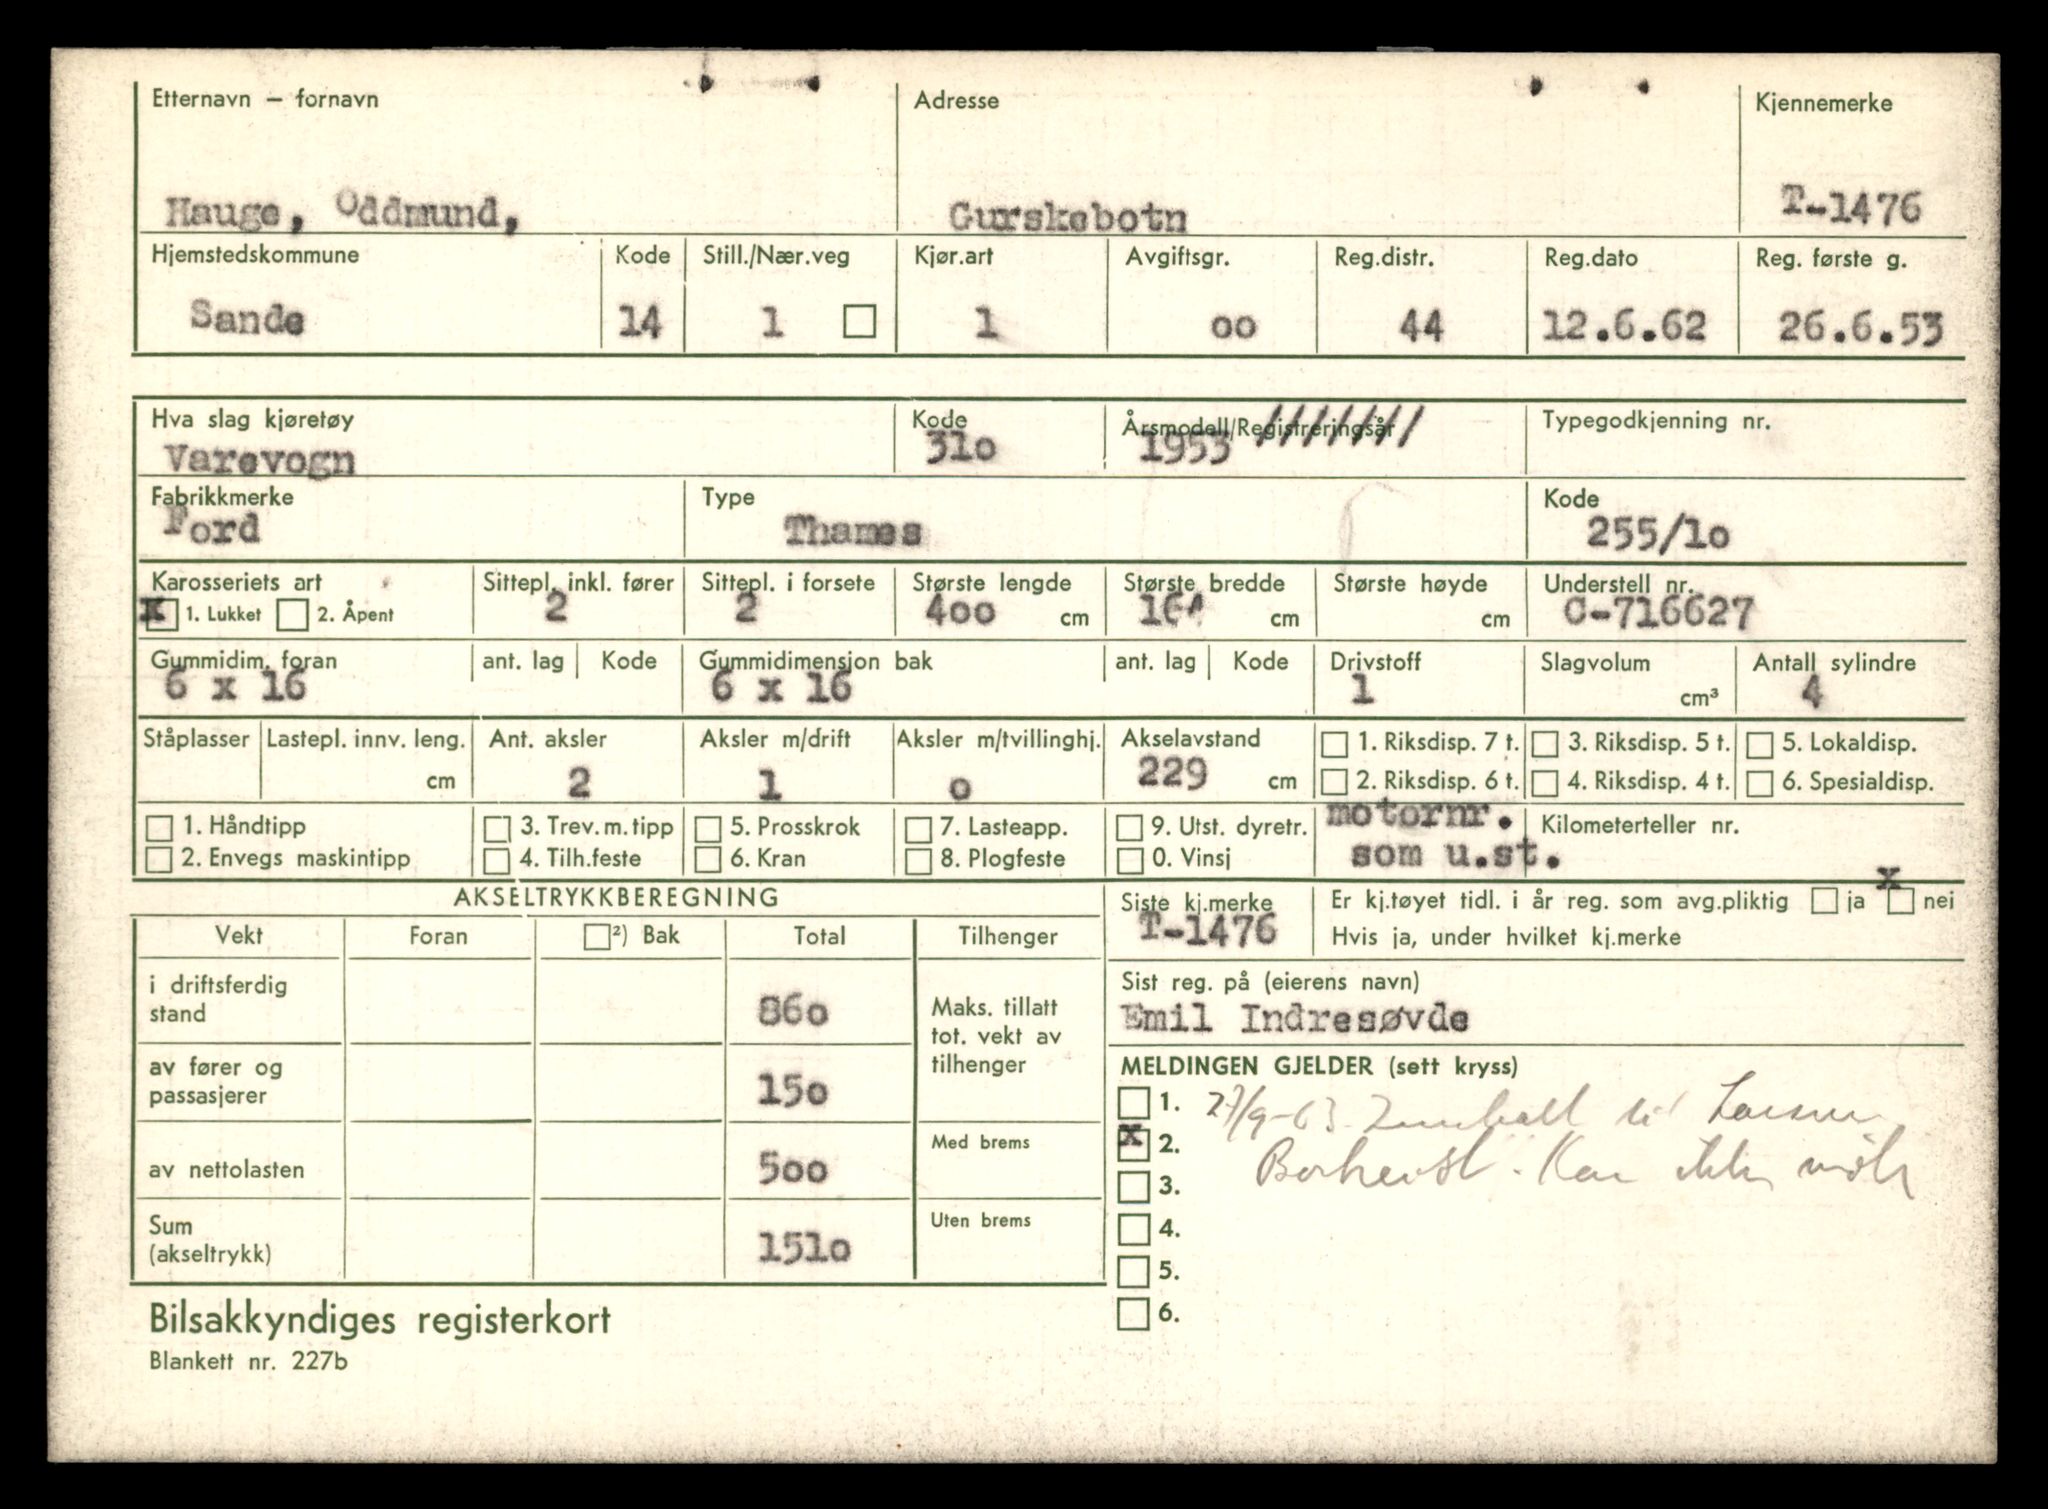 Etternavn – fornavn Adresse Kjennemerke
Hauge, Oddmund, Gurskebotn T-1476
Hjemstedskommune Kode Still./Nær.veg Kjør.art Avgiftsgr. Reg.distr. Reg.dato Reg. første g.
Sande 14 1 1 oo 44 12.6.62 26.6.53
Hva slag kjøretøy Kode Årsmodell/Registreringsår Typegodkjenning nr.
Varevogn 31o 1953 ///////
Fabrikkmerke Type Kode
Ford Thames 255/1o
Karosseriets art Sittepl. inkl. fører Sittepl. i forsete Største lengde Største bredde Største høyde Understell nr.
x 1. Lukket 2. Åpent 2 2 4oo cm cm cm C-716627
Gummidim. foran ant. lag Kode Gummidimensjon bak ant. lag Kode Drivstoff Slagvolum Antall sylindre
6 x 16 6 x 16 1 cm³ 4
Ståplasser Lastepl. innv. leng. Ant. aksler Aksler m/drift Aksler m/tvillinghj. Akselavstand 1. Riksdisp. 7 t. 3. Riksdisp. 5 t. 5. Lokaldisp.
cm 2 1 o 229 cm 2. Riksdisp. 6 t. 4. Riksdisp. 4 t. 6. Spesialdisp.
1. Håndtipp 3. Trev. m. tipp 5. Prosskrok 7. Lasteapp. 9. Utst. dyretr. motornr. Kilometerteller nr.
2. Envegs maskintipp 4. Tilh.feste 6. Kran 8. Plogfeste 0. Vinsj som u.st.
AKSELTRYKKBEREGNING Siste kj.merke Er kj.tøyet tidl. i år reg. som avg.pliktig ja x nei
Vekt Foran ²) Bak Total Tilhenger T-1476 Hvis ja, under hvilket kj.merke
i driftsferdig stand 86o
Maks. tillatt tot. vekt av tilhenger
Sist reg. på (eierens navn)
Emil Indresøvde
av fører og passasjerer 15o
MELDINGEN GJELDER (sett kryss)
1. 27/9-63 til
x 2. Kan ikke
av nettolasten 5oo Med brems
3.
4.
Sum (akseltrykk) 151o Uten brems
5.
6.
Bilsakkyndiges registerkort
Blankett nr. 227b